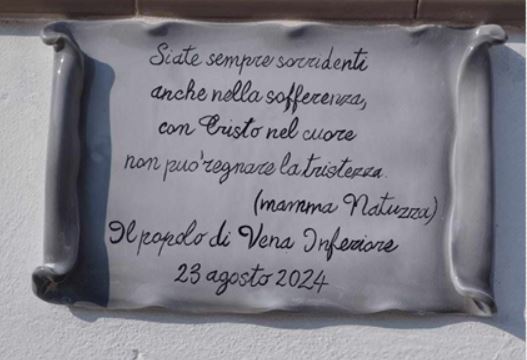 Siate sempre sorridenti
anche nella sofferenza,
con Cristo nel cuore
non può regnare la tristezza.
(mamma Natuzza)
Il popolo di Vena Inferiore
23 agosto 2024